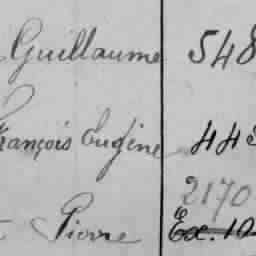 Guillaume 548
François Eugène 443
2170
Pierre Ex. 10